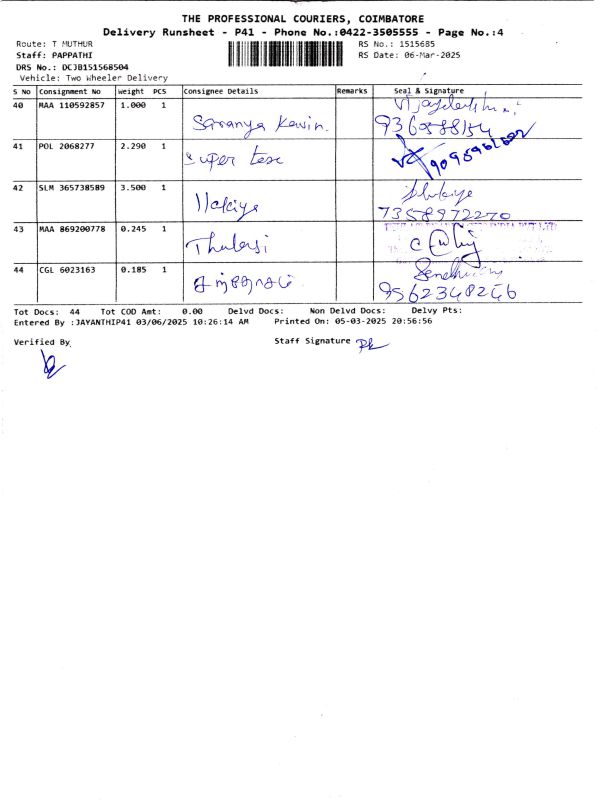 THE PROFESSIONAL COURIERS, COIMBATORE
Delivery Runsheet - P41 - Phone No.:0422-3505555 - Page No.:4
Route: T MUTHUR RS No.: 1515685
Staff: PAPPATHI RS Date: 06-Mar-2025
DRS No.: DCJB151568504
Vehicle: Two Wheeler Delivery
S No Consignment No Weight PCS Consignee Details Remarks Seal & Signature
40 MAA 110592857 1.000 1 Saranya Kawin.
41 POL 2068277 2.290 1 Super tex
42 SLM 365738589 3.500 1 Ilakiya
7358972270
43 MAA 869200778 0.245 1 Thulasi
44 CGL 6023163 0.185 1
9562348246
Tot Docs: 44 Tot COD Amt: 0.00 Delvd Docs: Non Delvd Docs: Delvy Pts:
Entered By :JAYANTHIP41 03/06/2025 10:26:14 AM Printed On: 05-03-2025 20:56:56
Verified By Staff Signature